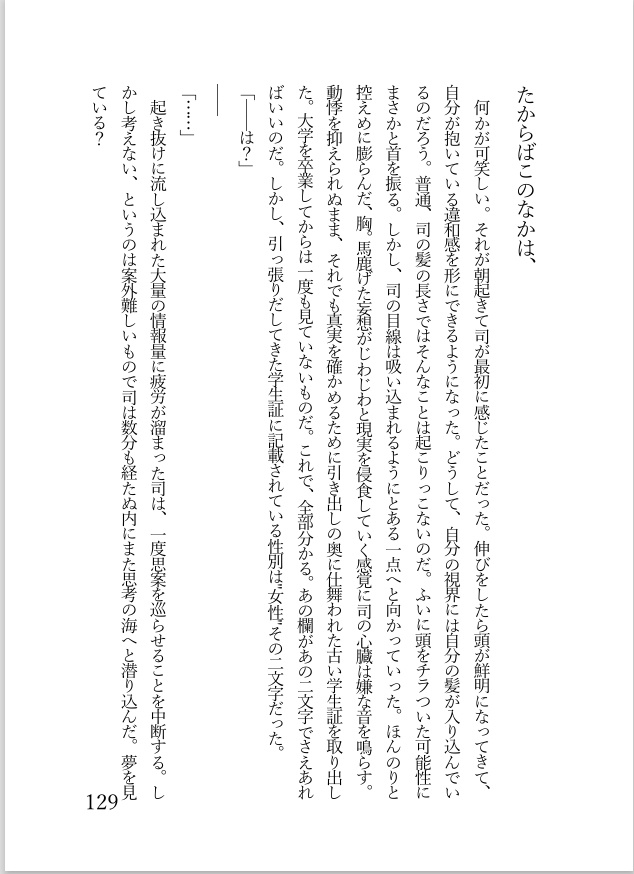 たからばこのなかは、
　何かが可笑しい。それが朝起きて司が最初に感じたことだった。伸びをしたら頭が鮮明になってきて、
自分が抱いている違和感を形にできるようになった。どうして、自分の視界には自分の髪が入り込んでい
るのだろう。普通、司の髪の長さではそんなことは起こりっこないのだ。ふいに頭をチラついた可能性に
まさかと首を振る。しかし、司の目線は吸い込まれるようにとある一点へと向かっていった。ほんのりと
控えめに膨らんだ、胸。馬鹿げた妄想がじわじわと現実を侵食していく感覚に司の心臓は嫌な音を鳴らす。
動悸を抑えられぬまま、それでも真実を確かめるために引き出しの奥に仕舞われた古い学生証を取り出し
た。大学を卒業してからは一度も見ていないものだ。これで、全部分かる。あの欄があの二文字でさえあれ
ばいいのだ。しかし、引っ張りだしてきた学生証に記載されている性別は"女性"その二文字だった。
「――は？」
――
「……」
　起き抜けに流し込まれた大量の情報量に疲労が溜まった司は、一度思案を巡らせることを中断する。し
かし考えない、というのは案外難しいもので司は数分も経たぬ内にまた思考の海へと潜り込んだ。夢を見
ている？
129